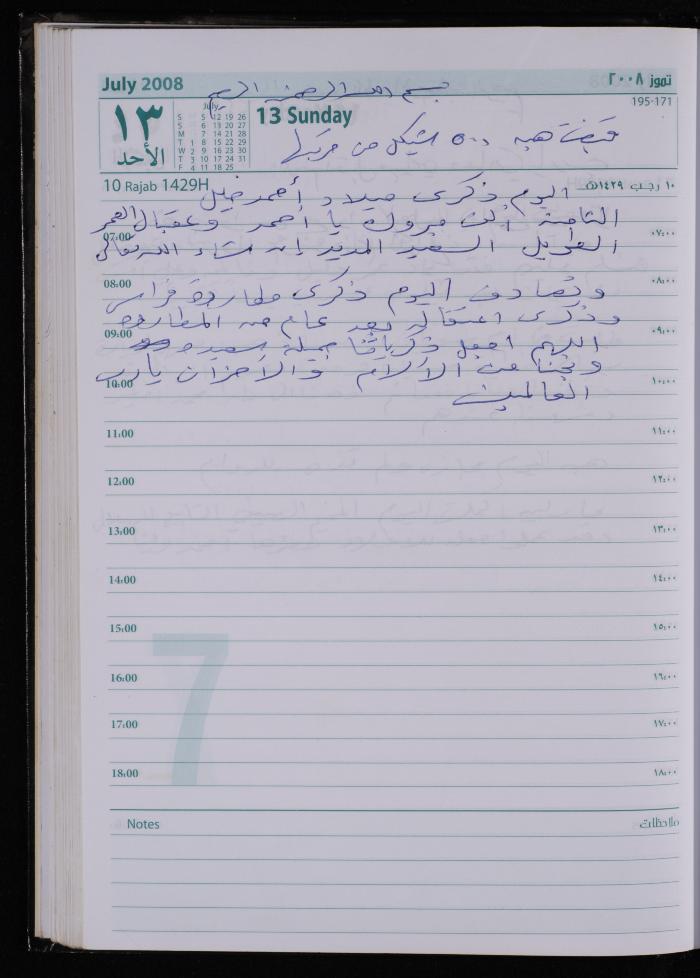 July 2008
تموز ٢٠٠٨
بسم الله الرحمن الرحيم
195-171
١٣
الأحد
July
S 5 12 19 26
S 6 13 20 27
M 7 14 21 28
T 1 8 15 22 29
W 2 9 16 23 30
T 3 10 17 24 31
F 4 11 18 25
13 Sunday
قبضت هبه ٥٠٠ شيكل من
10 Rajab 1429H
١٠ رجب ١٤٢٩هـ
اليوم ذكرى ميلاد أحمد
الثامنة ألف مبروك يا أحمد وعقبال العمر
07:00
٠٧:٠٠
الطويل السعيد المديد إن شاء الله تعالى
08:00
٠٨:٠٠
وتصادف اليوم ذكرى مطاردة فراس
وذكرى اعتقاله بعد عام من المطاردة
09:00
٠٩:٠٠
اللهم اجعل ذكرياتنا جميلة سعيدة
ونجنا من الآلام والأحزان يا رب
10:00
١٠:٠٠
العالمين
11:00
١١:٠٠
12:00
١٢:٠٠
13:00
١٣:٠٠
14:00
١٤:٠٠
15:00
١٥:٠٠
16:00
١٦:٠٠
17:00
١٧:٠٠
18:00
١٨:٠٠
7
Notes
ملاحظات